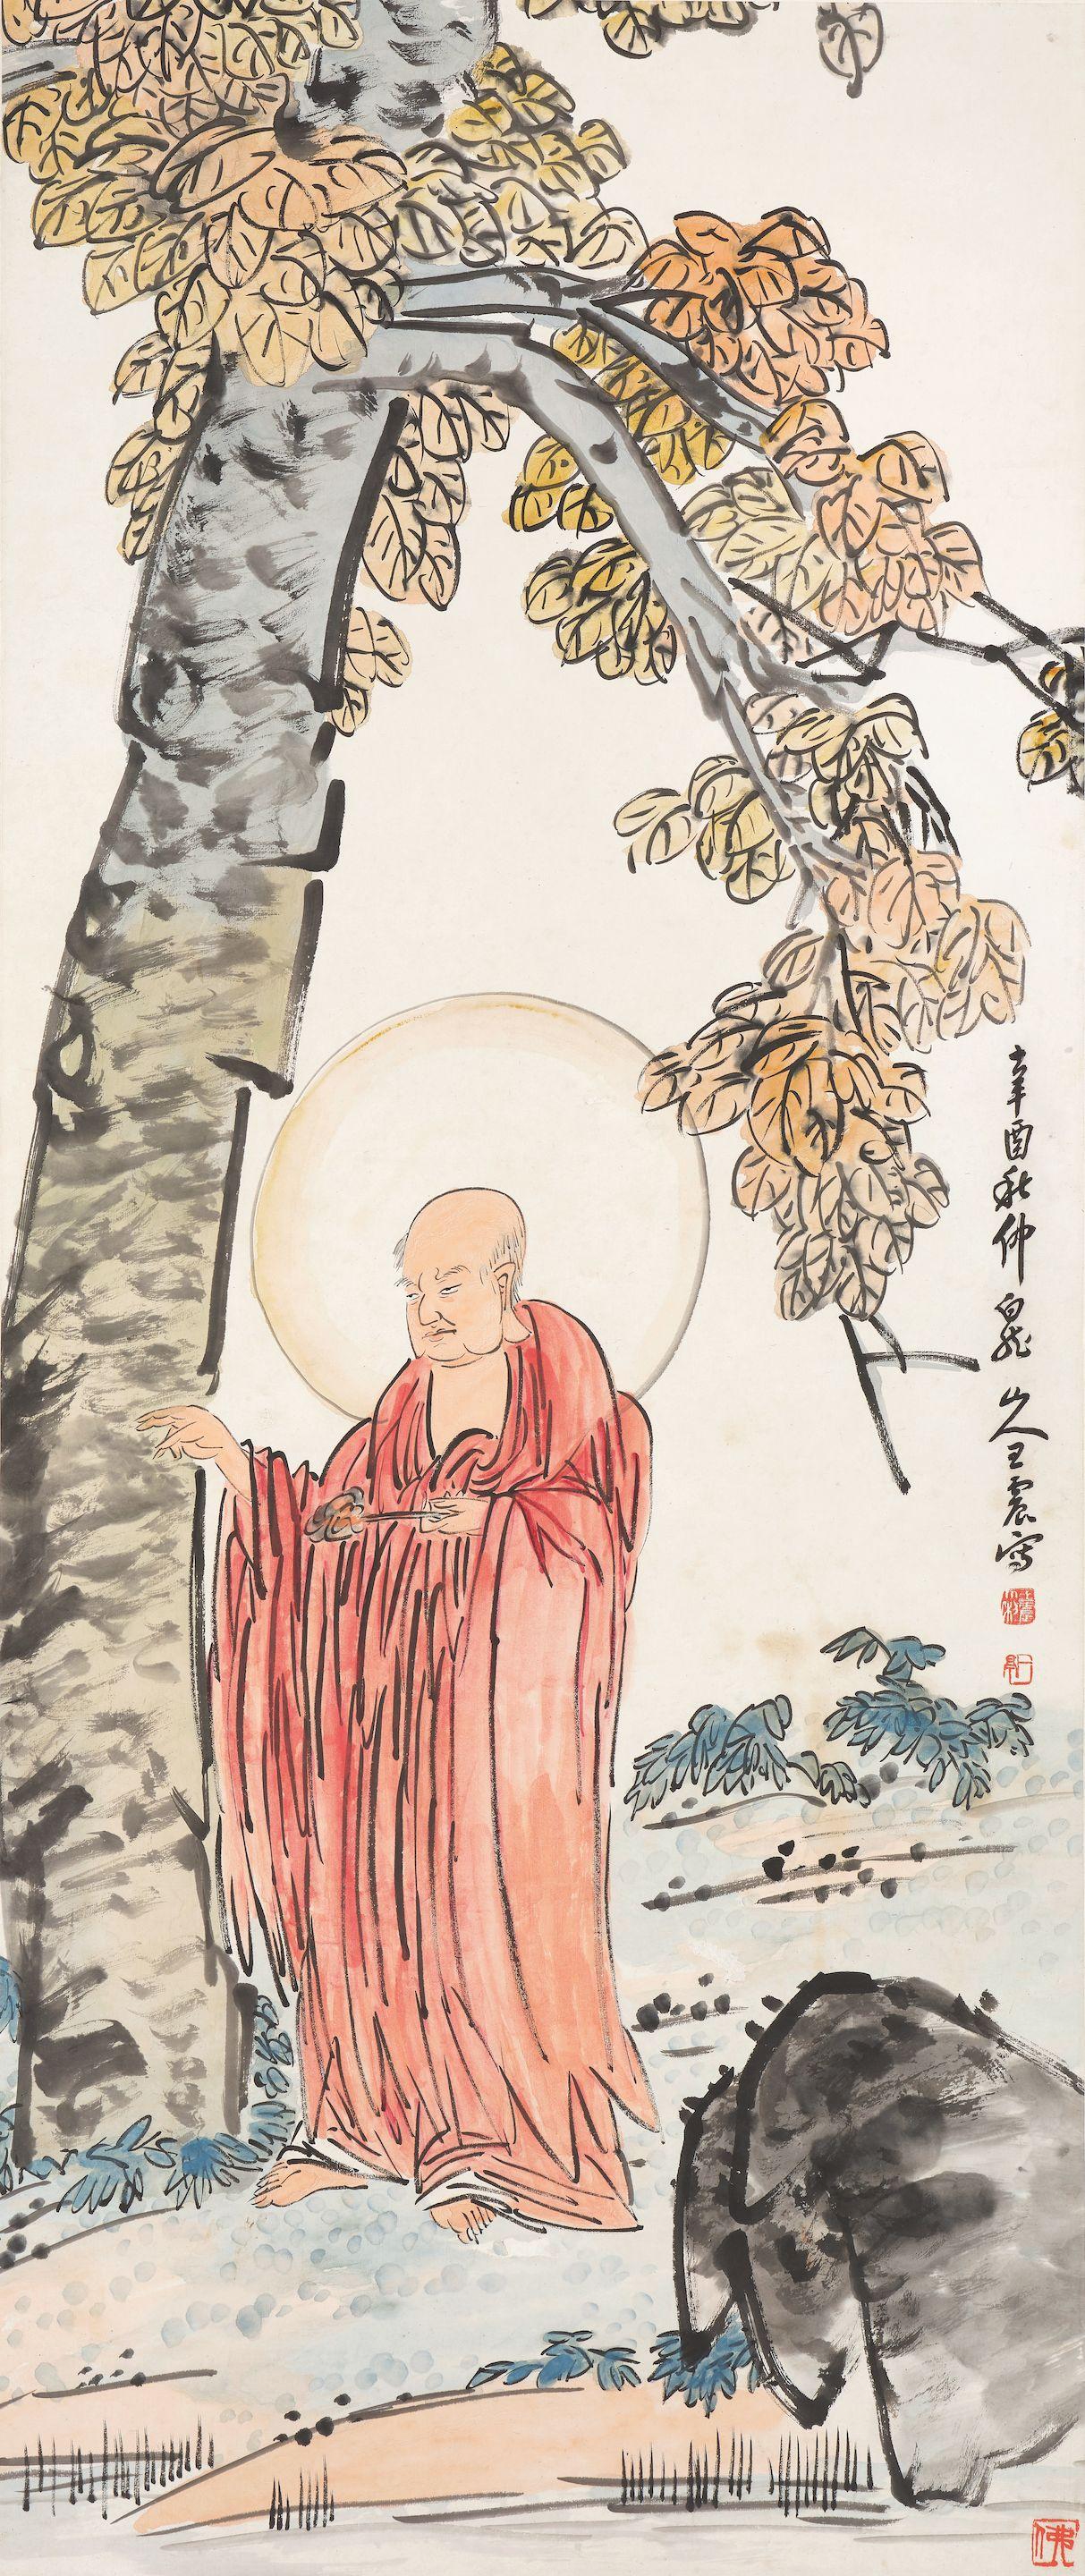 辛酉秋仲白龍山人王震寫
佛